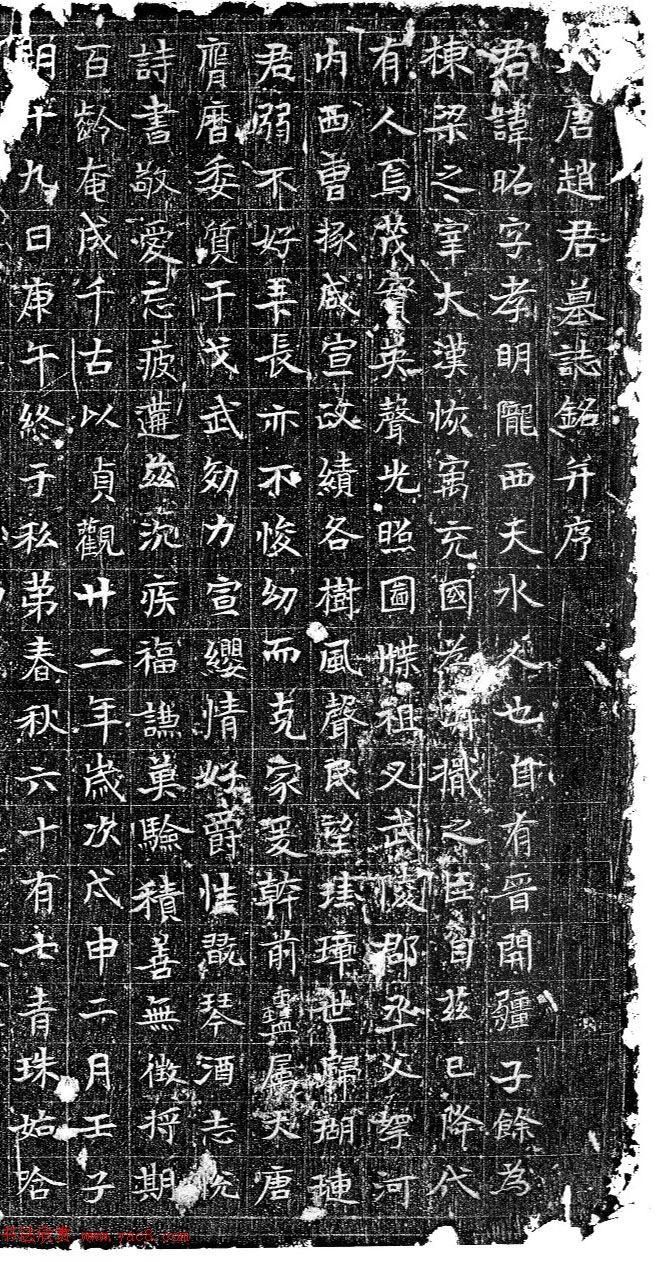 唐趙君墓誌銘并序
君諱昭字孝明隴西天水人也自有晉開疆子餘為
棟梁之宰大漢恢寓充國為之臣自茲已降代
有人焉茂實英聲光照圖牒祖叉武陵郡丞父擧河
内西曹掾咸宣政績各樹風聲民望珪璋世歸瑚璉
君弱不好弄長亦不悛幼而克家爰幹前蠱屬大唐
膺曆委質干戈武効力宣纓情好爵性翫琴酒志悅
詩書敬愛忘疲遘茲沉疾福謙莫驗積善無徵將期
百齡奄成千古以貞觀廿二年歲次戊申二月壬子
朔十九日庚午終于私第春秋六十有七青珠始晗
www.yac8.com